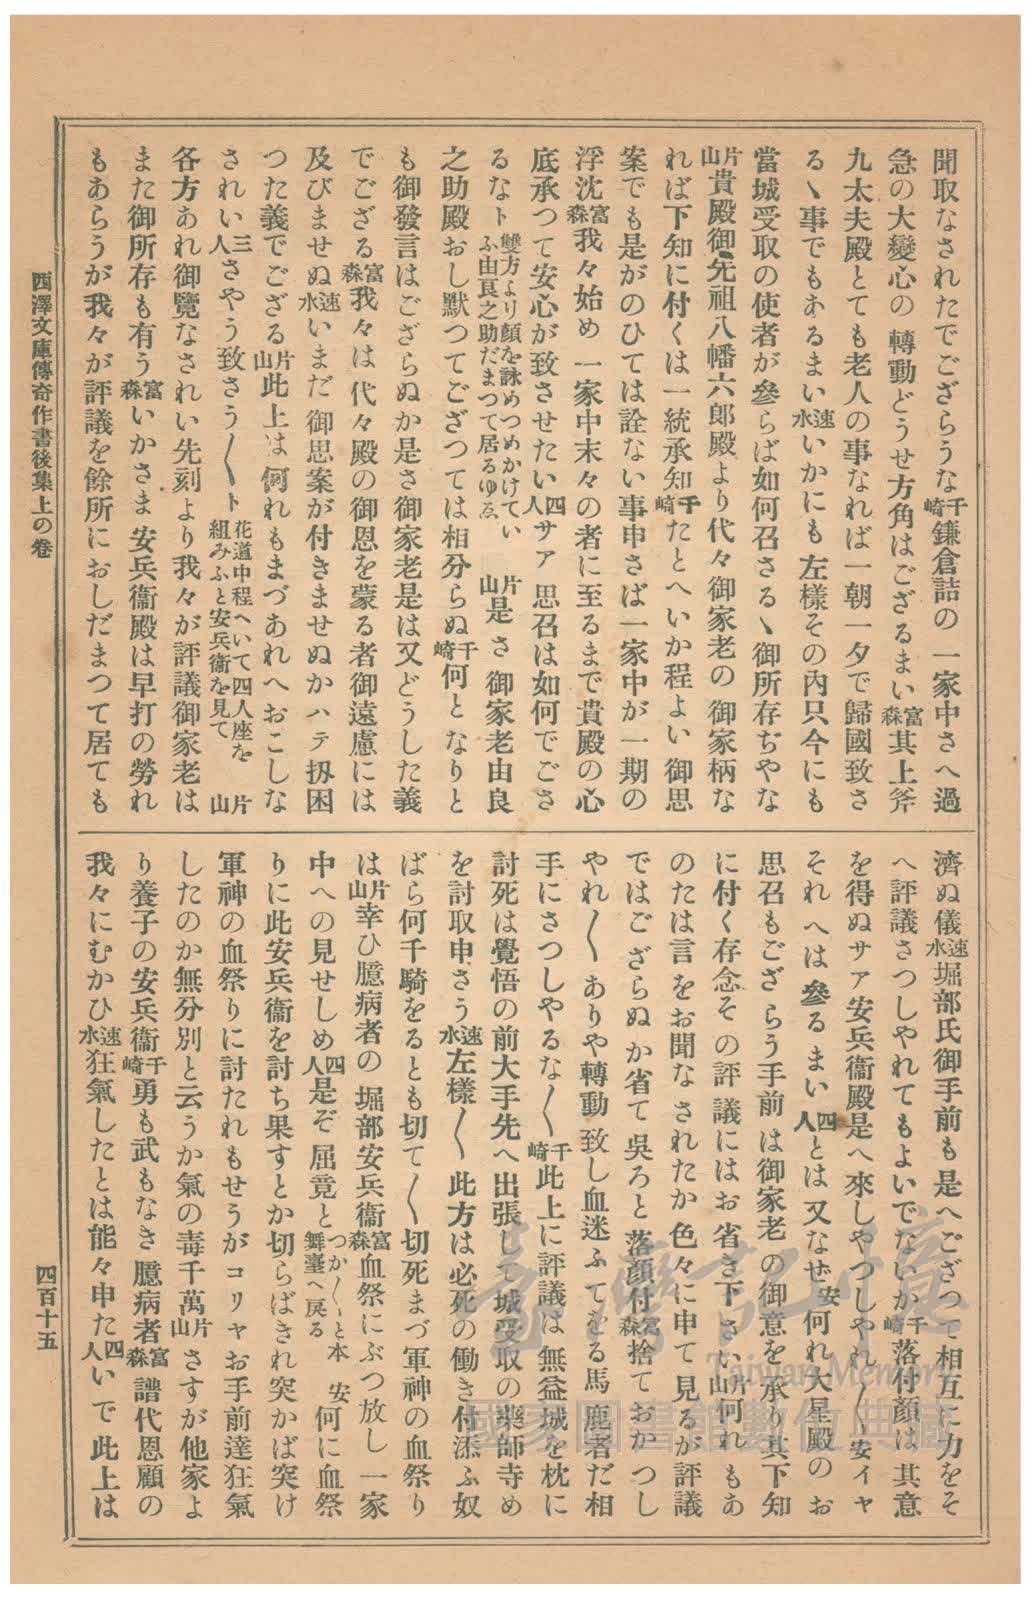 聞取なされたでござらうな千崎鎌倉詰の一家中さへ過
急の大變心の轉動どうせ方角はござるまい富森其上斧
九太夫殿とても老人の事なれば一朝一夕で歸國致さ
るヽ事でもあるまい速水いかにも左樣その内只今にも
當城受取の使者が參らば如何召さるヽ御所存ぢやな
片山貴殿御先祖八幡六郎殿より代々御家老の御家柄な
れば下知に付くは一統承知千崎たとへいか程よい御思
案でも是がのひては詮ない事申さば一家中が一期の
浮沈富森我々始め一家中末々の者に至るまで貴殿の心
底承つて安心が致させたい四人サア思召は如何でござ
るなト雙方より顏を詠めつめかけてい
ふ由良之助だまつて居るゆゑ片山是さ御家老由良
之助殿おし默つてござつては相分らぬ千崎何となりと
も御發言はござらぬか是さ御家老是は又どうした義
でござる富森我々は代々殿の御恩を蒙る者御遠慮には
及びませぬ速水いまだ御思案が付きませぬかハテ扨困
つた義でござる片山此上は何れもまづあれへおこしな
されい三人さやう致さう〱ト花道中程へいて四人座を
組みふと安兵衞を見て片山
各方あれ御覽なされい先刻より我々が評議御家老は
また御所存も有う富森いかさま安兵衞殿は早打の勞れ
もあらうが我々が評議を餘所におしだまつて居ても
濟ぬ儀速水堀部氏御手前も是へござつて相互に力をそ
へ評議さつしやれてもよいでないか千崎落付顏は其意
を得ぬサア安兵衞殿是へ來しやつしやれ〱安イヤ
それへは參るまい四人とは又なぜ安何れ大星殿のお
思召もござらう手前は御家老の御意を承り其下知
に付く存念その評議にはお省き下さい片山何れもあ
のたは言をお聞なされたか色々に申て見るが評議
ではござらぬか省て吳ろと落顏付富森捨ておかつし
やれ〱ありや轉動致し血迷ふてをる馬鹿者だ相
手にさつしやるな〱千崎此上に評議は無益城を枕に
討死は覺悟の前大手先へ出張して城受取の藥師寺め
を討取申さう速水左樣〱此方は必死の働き付添ふ奴
ばら何千騎をるとも切て〱切死まづ軍神の血祭り
は片山幸ひ臆病者の堀部安兵衞富森血祭にぶつ放し一家
中への見せしめ四人是ぞ屈竟とつか〱と本
舞臺へ戾る安何に血祭
りに此安兵衞を討ち果すとか切らばきれ突かば突け
軍神の血祭りに討たれもせうがコリャお手前達狂氣
したのか無分別と云うか氣の毒千萬片山さすが他家よ
り養子の安兵衞千崎勇も武もなき臆病者富森譜代恩顧の
我々にむかひ速水狂氣したとは能々申た四人いで此上は
西澤文庫傳奇作書後集上の卷
四百十五
臺灣記憶
Taiwan Memory
國家圖書館數位典藏